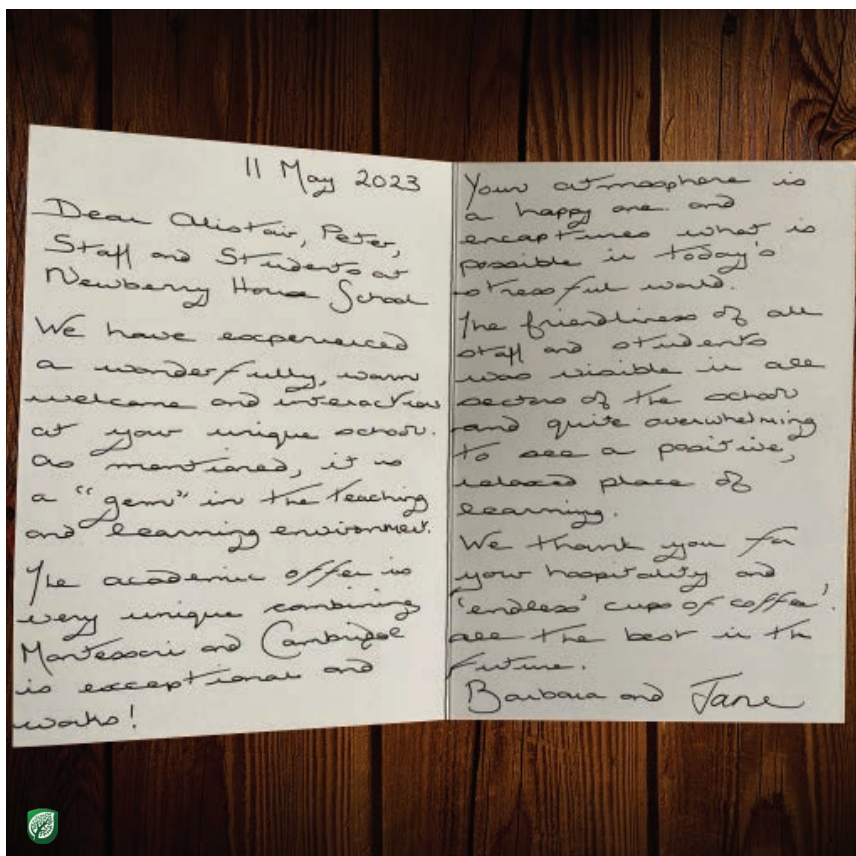 11 May 2023
Dear Alistair, Peter,
Staff and Students at
Newberry House School
We have experienced
a wonderfully, warm
welcome and interaction
at your unique school.
As mentioned, it is
a "gem" in the teaching
and learning environment.
The academic offer is
very unique combining
Montessori and Cambridge
is exceptional and
works!
Your atmosphere is
a happy one. and
encaptures what is
possible in today's
stressful world.
The friendliness of all
staff and students
was visible in all
sectors of the school
and quite overwhelming
to see a positive,
relaxed place of
learning.
We thank you for
your hospitality and
'endless' cups of coffee'.
All the best in the
future.
Barbara and Jane